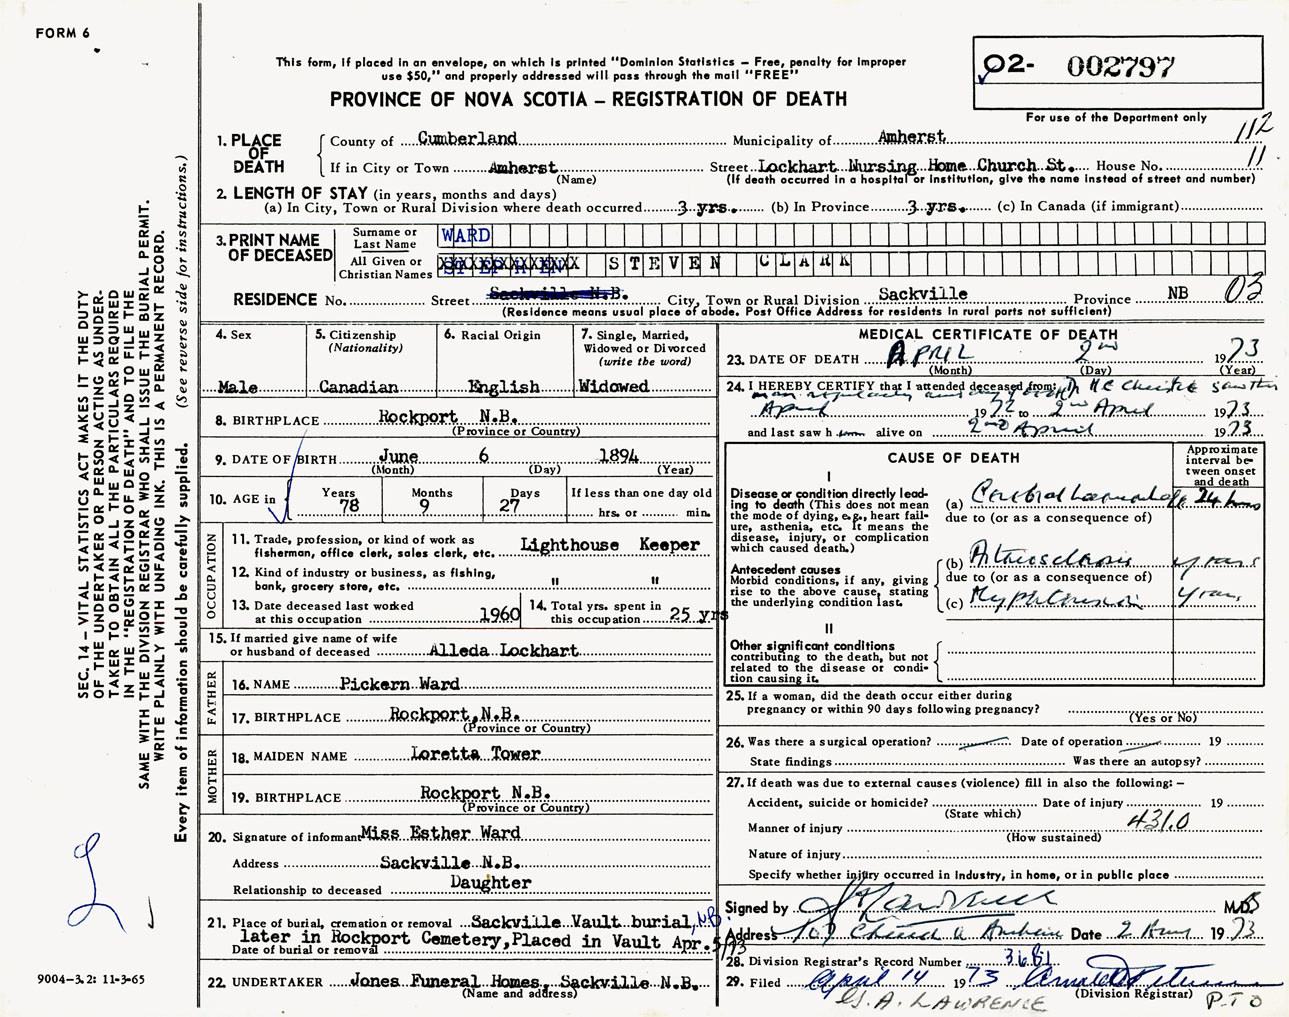 FORM 6
This form, if placed in an envelope, on which is printed "Dominion Statistics – Free, penalty for improper
use $50," and properly addressed will pass through the mail "FREE"
PROVINCE OF NOVA SCOTIA – REGISTRATION OF DEATH
02- 002797
For use of the Department only
112
1. PLACE OF DEATH County of Cumberland Municipality of Amherst
If in City or Town Amherst Street Lockhart Nursing Home Church St. House No. 11
(Name) (If death occurred in a hospital or institution, give the name instead of street and number)
2. LENGTH OF STAY (in years, months and days)
(a) In City, Town or Rural Division where death occurred 3 yrs. (b) In Province 3 yrs. (c) In Canada (if immigrant)
3. PRINT NAME OF DECEASED Surname or Last Name WARD
All Given or Christian Names STEVEN CLARK
RESIDENCE No. Street Sackville N.B. City, Town or Rural Division Sackville Province NB 03
(Residence means usual place of abode. Post Office Address for residents in rural parts not sufficient)
4. Sex Male
5. Citizenship (Nationality) Canadian
6. Racial Origin English
7. Single, Married, Widowed or Divorced (write the word) Widowed
8. BIRTHPLACE Rockport N.B.
(Province or Country)
9. DATE OF BIRTH June 6 1894
(Month) (Day) (Year)
10. AGE in Years 78 Months 9 Days 27 If less than one day old
hrs. or min.
OCCUPATION
11. Trade, profession, or kind of work as
fisherman, office clerk, sales clerk, etc. Lighthouse Keeper
12. Kind of industry or business, as fishing,
bank, grocery store, etc. " "
13. Date deceased last worked
at this occupation 1960
14. Total yrs. spent in
this occupation 25 yrs
15. If married give name of wife
or husband of deceased Alleda Lockhart
FATHER
16. NAME Pickern Ward
17. BIRTHPLACE Rockport, N.B.
(Province or Country)
MOTHER
18. MAIDEN NAME Loretta Tower
19. BIRTHPLACE Rockport N.B.
(Province or Country)
20. Signature of informant Miss Esther Ward
Address Sackville N.B.
Relationship to deceased Daughter
21. Place of burial, cremation or removal Sackville Vault burial, N.B.
later in Rockport Cemetery, Placed in Vault Apr. 5/73
Date of burial or removal
22. UNDERTAKER Jones Funeral Homes, Sackville N.B.
(Name and address)
MEDICAL CERTIFICATE OF DEATH
23. DATE OF DEATH APRIL 2nd 1973
(Month) (Day) (Year)
24. I HEREBY CERTIFY that I attended deceased from:
April 1972 to 2nd April 1973
and last saw h alive on 2nd April 1973
CAUSE OF DEATH
Approximate interval between onset and death
I
Disease or condition directly lead-
ing to death (This does not
mean the mode of dying, e.g., heart fail-
ure, asthenia, etc. It means the
disease, injury, or complication
which caused death.)
(a) Cerebral haemorrhage 24 hours
due to (or as a consequence of)
Antecedent causes
Morbid conditions, if any, giving
rise to the above cause, stating
the underlying condition last.
(b) Atherosclerosis years
due to (or as a consequence of)
(c) Hypertension years
II
Other significant conditions
contributing to the death, but not
related to the disease or condi-
tion causing it.
25. If a woman, did the death occur either during
pregnancy or within 90 days following pregnancy?
(Yes or No)
26. Was there a surgical operation? Date of operation 19
State findings Was there an autopsy?
27. If death was due to external causes (violence) fill in also the following: –
Accident, suicide or homicide? Date of injury 19
(State which)
Manner of injury 431.0
(How sustained)
Nature of injury
Specify whether injury occurred in industry, in home, or in public place
Signed by M.D.
Address 107 Church St Amherst Date 2 19 73
28. Division Registrar's Record Number 3681
29. Filed April 14 1973
(Division Registrar)
G. A. LAWRENCE
P.T.O
SEC. 14 – VITAL STATISTICS ACT MAKES IT THE DUTY
OF THE UNDERTAKER OR PERSON ACTING AS UNDER-
TAKER TO OBTAIN ALL THE PARTICULARS REQUIRED
IN THE "REGISTRATION OF DEATH" AND TO FILE THE
SAME WITH THE DIVISION REGISTRAR WHO SHALL ISSUE THE BURIAL PERMIT.
WRITE PLAINLY WITH UNFADING INK. THIS IS A PERMANENT RECORD.
Every item of information should be carefully supplied. (See reverse side for instructions.)
9004–3.2: 11-3-65